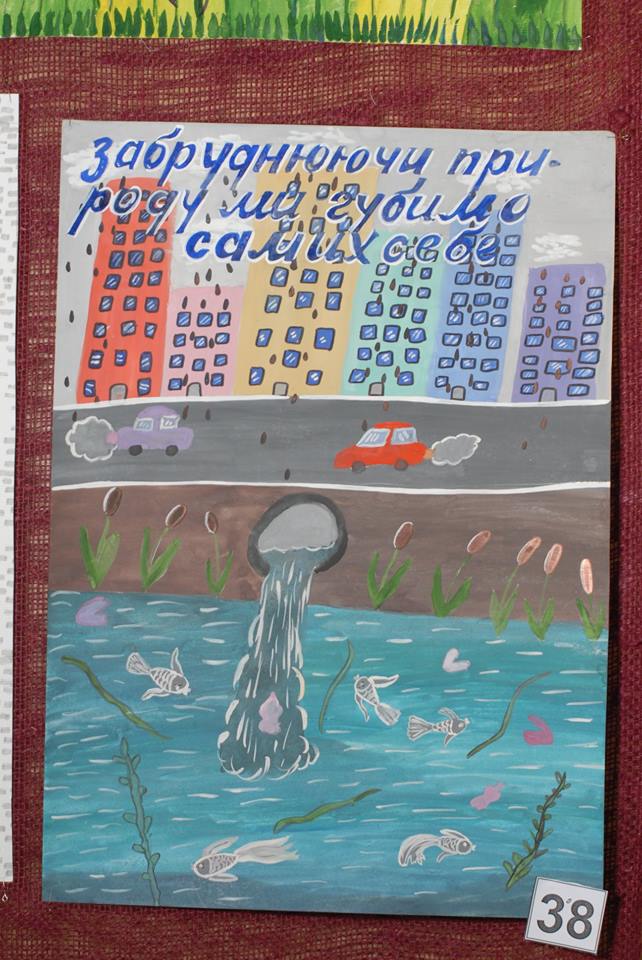 Забруднюючи при-
роду ми губимо
самих себе
38